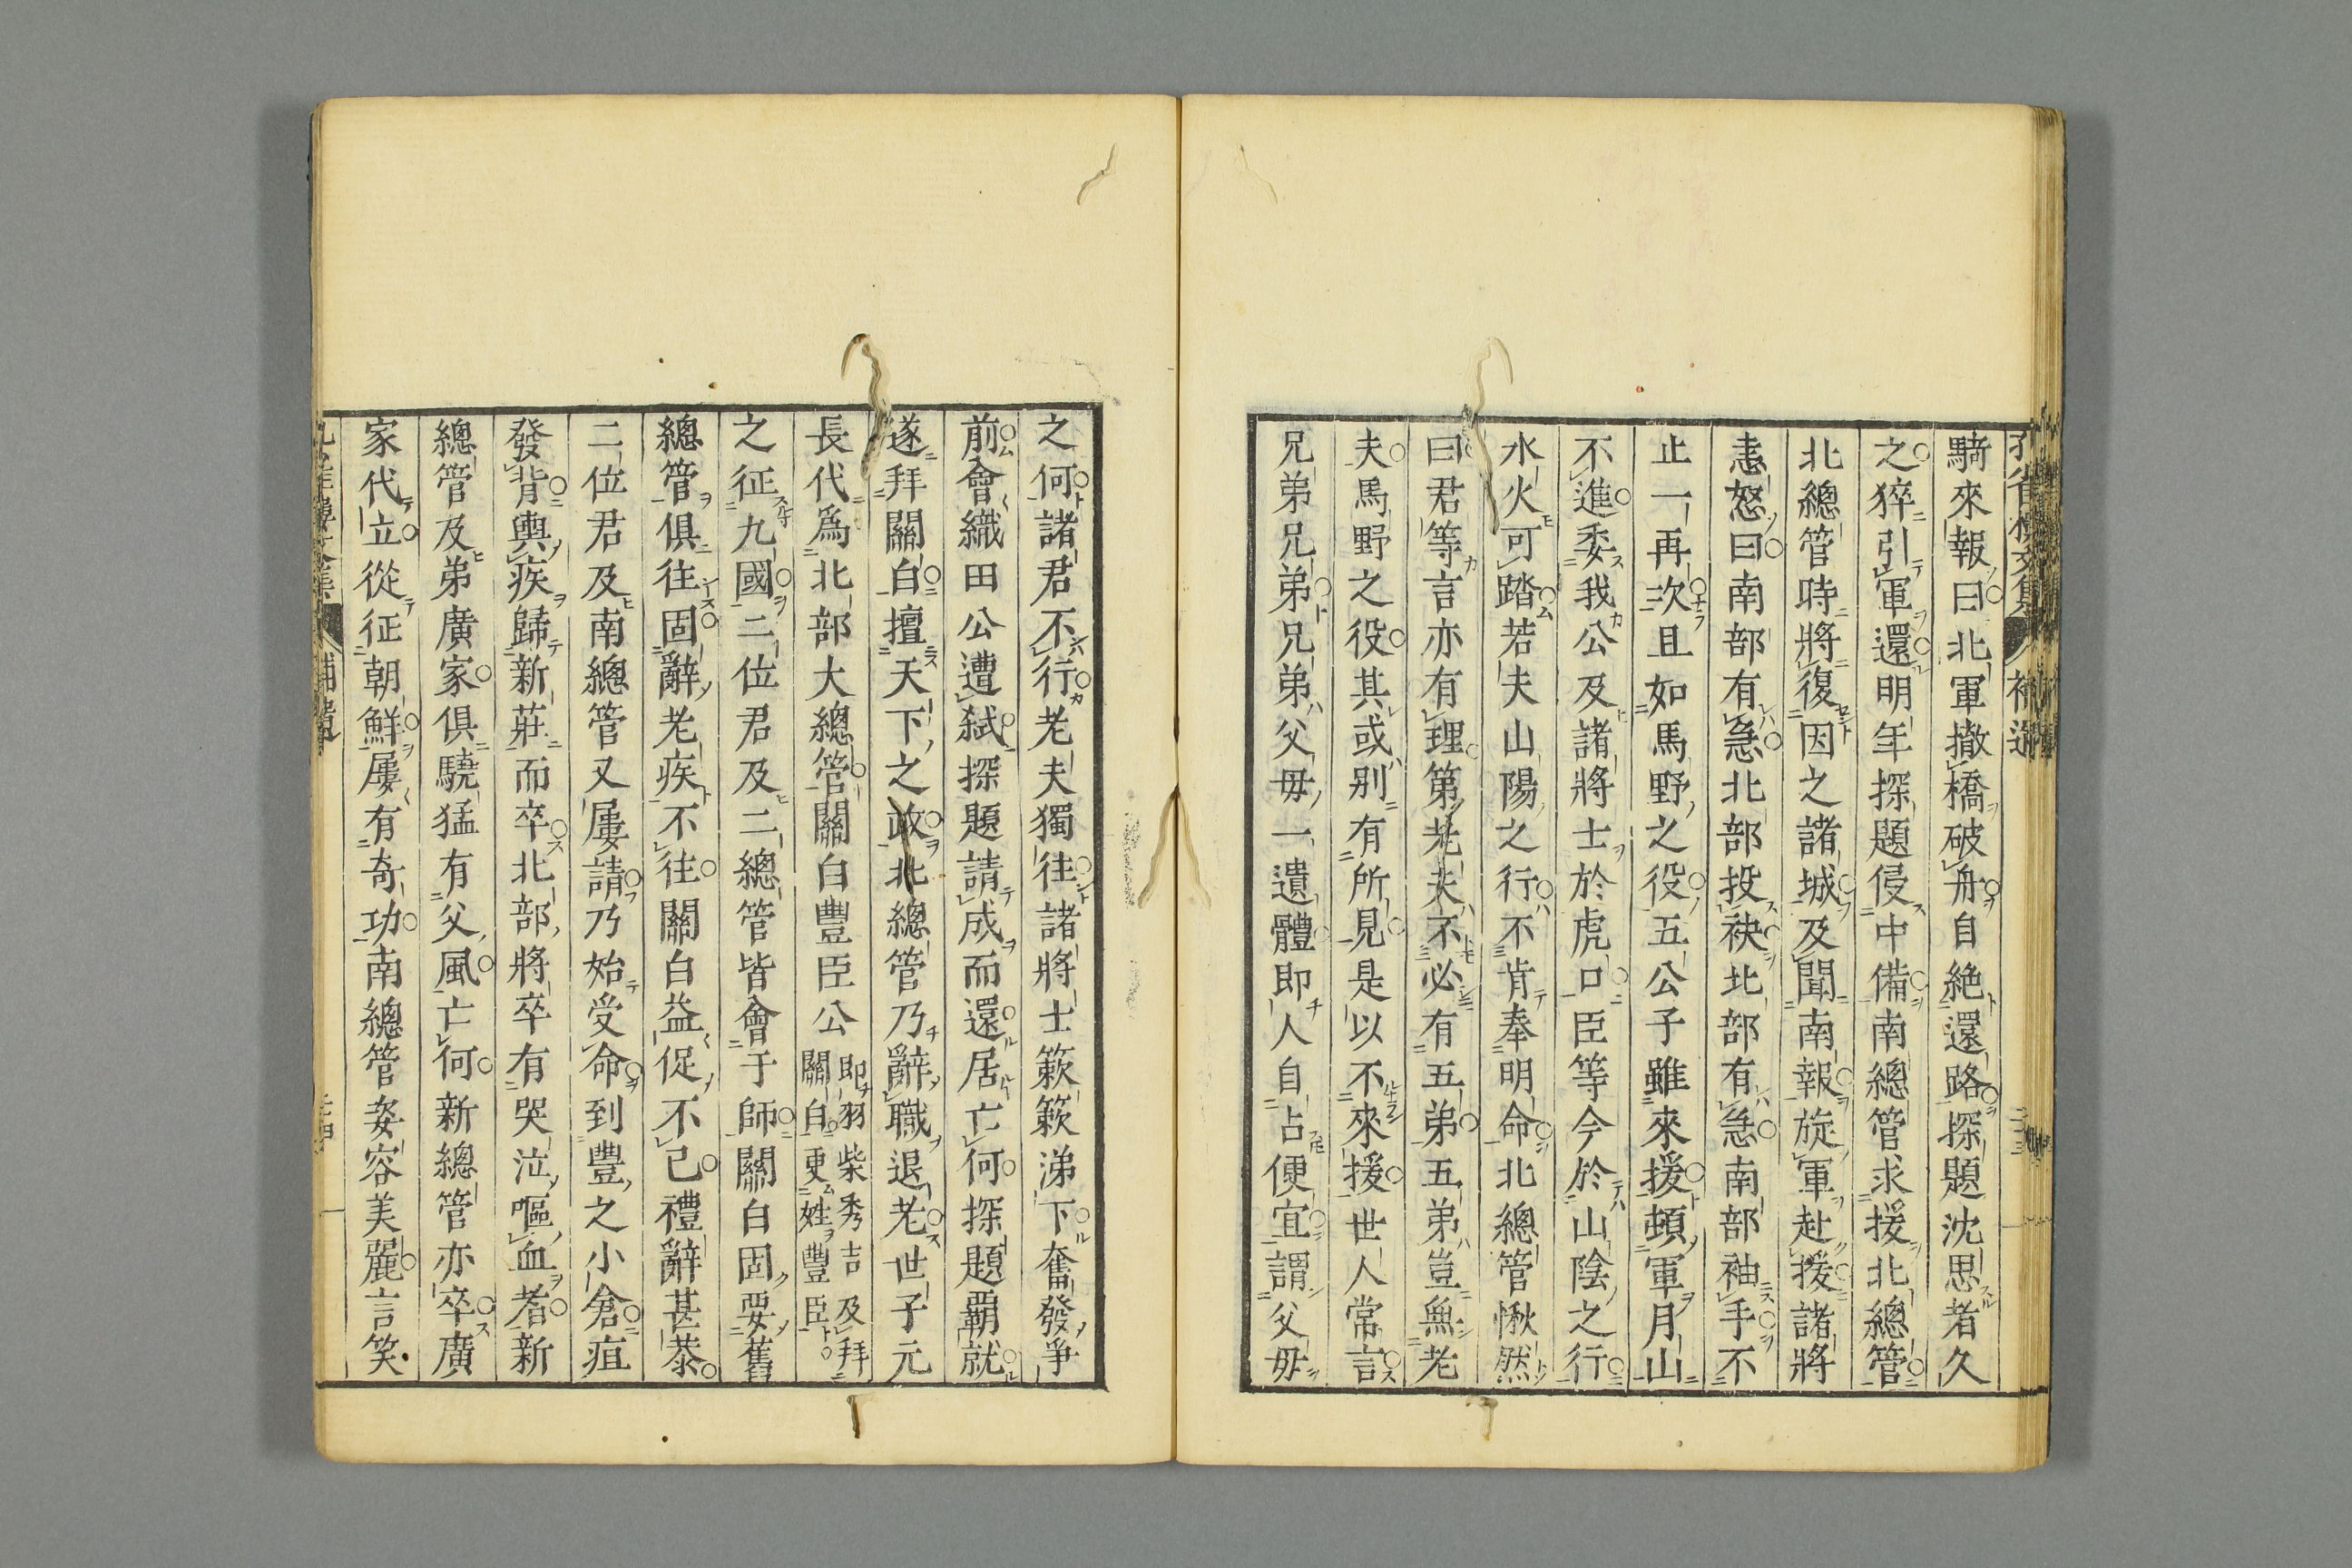 騎來報曰北軍撤橋破舟自絶還路探題沈思者久
之猝引軍還明年探題侵中備南總管求援北總管
北總管時將復因之諸城及聞南報旋軍赴援諸將
恚怒曰南部有急北部投袂北部有急南部袖手不
止一再次且如馬野之役五公子雖來援頓軍月山
不進委我公及諸將士於虎口臣等今於山陰之行
水火可踏若夫山陽之行不肯奉明命北總管愀然
曰君等言亦有理第老夫不必有五弟五弟豈無老
夫馬野之役其或別有所見是以不來援世人常言
兄弟兄弟兄弟父母一遺體即人自占便宜謂父母
之何諸君不行老夫獨往諸將士簌簌涕下奮發爭
前會織田公遭弑探題請成而還居亡何探題覇就
遂拜關白擅天下之政北總管乃辭職退老世子元
長代爲北部大總管關白豐臣公即羽柴秀吉及拜
關白更姓豐臣
之征九國二位君及二總管皆會于師關白固要舊
總管俱往固辭老疾不往關白益促不已禮辭甚恭
二位君及南總管又屢請乃始受命到豐之小倉疽
發背輿疾歸新莊而卒北部將卒有哭泣嘔血者新
總管及弟廣家俱驍猛有父風亡何新總管亦卒廣
家代立從征朝鮮屢有奇功南總管姿容美麗言笑
補遺